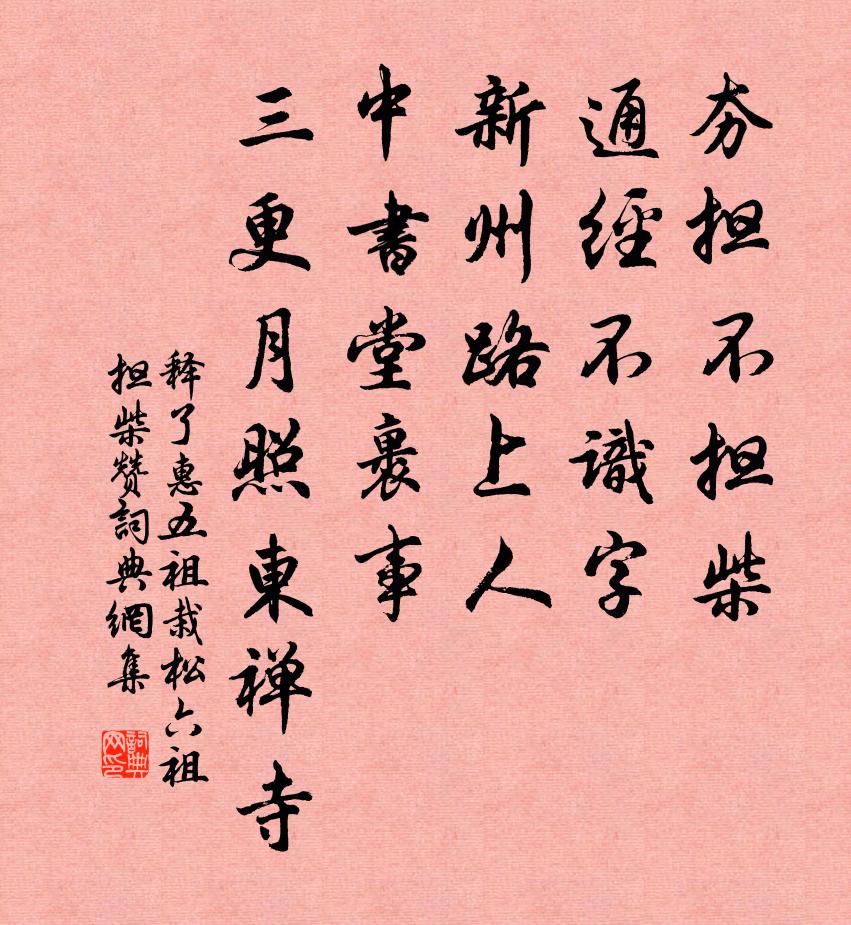 夯担不担柴
通經不識字
新州路上人
中書堂裏事
三更月照東禅寺
释了惠五祖栽松六祖
担柴赞詞典網集
詞典
网印